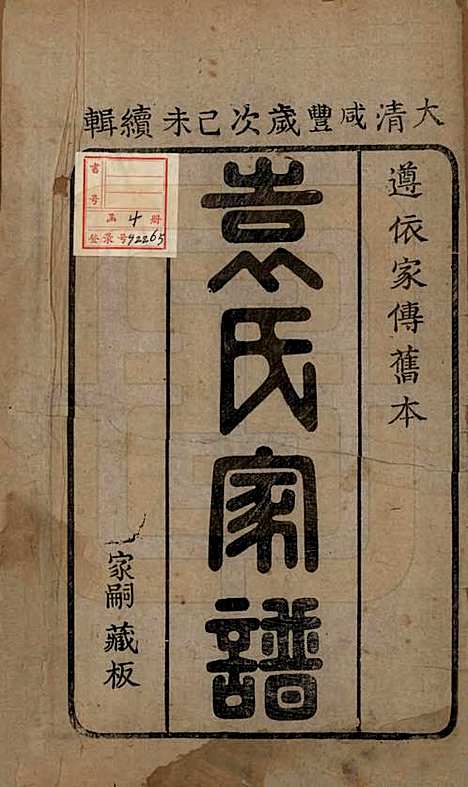 大清咸豐歲次己未續輯
遵依家傳舊本
袁氏家譜
家嗣藏板
書號
函 4 冊
登录号 92265